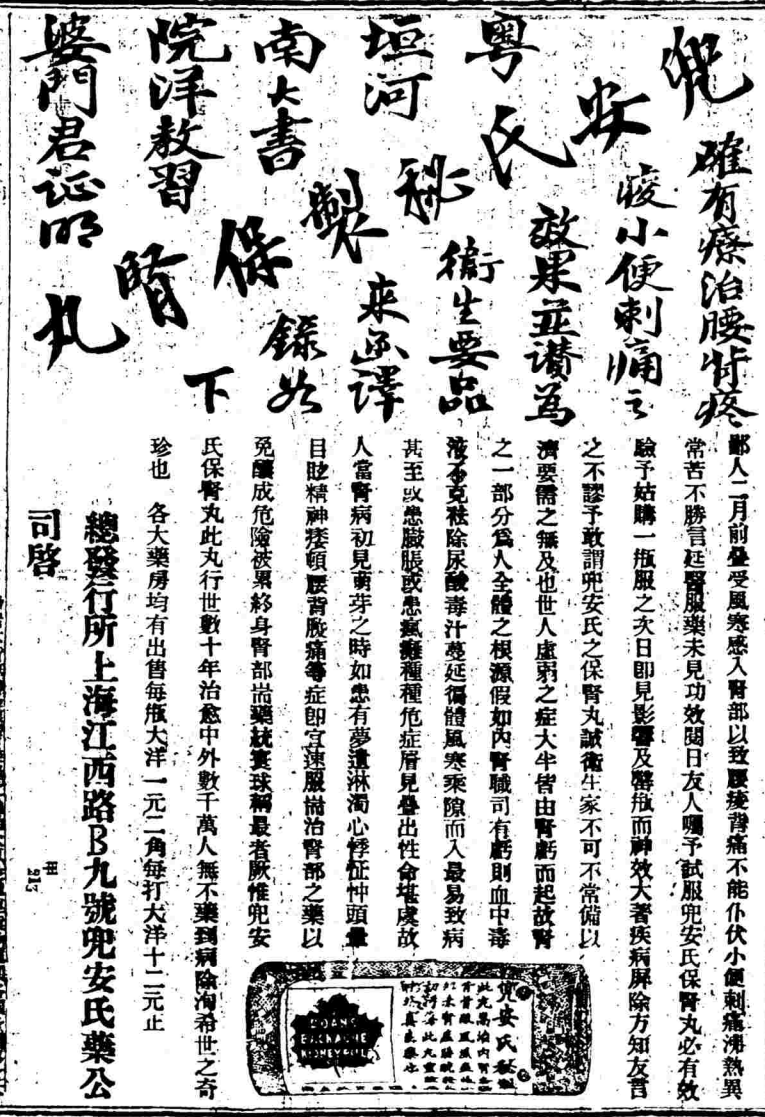 兜安氏秘製保腎丸
確有療治腰背疼
痠小便刺痛之
效果並讚為
衛生要品
粵
垣河
南大書
院洋教習
婆門君証明
來函譯
錄如
下
鄙人二月前疊受風寒感入腎部以致腰痠背痛不能仆伏小便刺痛沸熱異
常苦不勝言延醫服藥未見功效閱日友人囑予試服兜安氏保腎丸必有效
驗予姑購一瓶服之次日即見影響及罄瓶而神效大著疾病屏除方知友言
之不謬予敢謂兜安氏之保腎丸誠衛生家不可不常備以
濟要需之無及也世人虛弱之症大半皆由腎虧而起故腎
之一部分為人全體之根源假如內腎職司有虧則血中毒
液不克祛除尿酸毒汁蔓延徧體風寒乘隙而入最易致病
甚至或患臌脹或患瘋癱種種危症層見疊出性命堪虞故
人當腎病初見萌芽之時如患有夢遺淋濁心悸怔忡頭暈
目眩精神痿頓腰背股痛等症卽宜速服耑治腎部之藥以
免釀成危險被累終身腎部耑藥統寰球稱最者厥惟兜安
氏保腎丸此丸行世數十年治愈中外數千萬人無不藥到病除洵希世之奇
珍也　各大藥房均有出售每瓶大洋一元二角每打大洋十二元止
總發行所上海江西路B九號兜安氏藥公
司啓
兜安氏秘製
DOANS
BACKACHE
KIDNEY PILLS